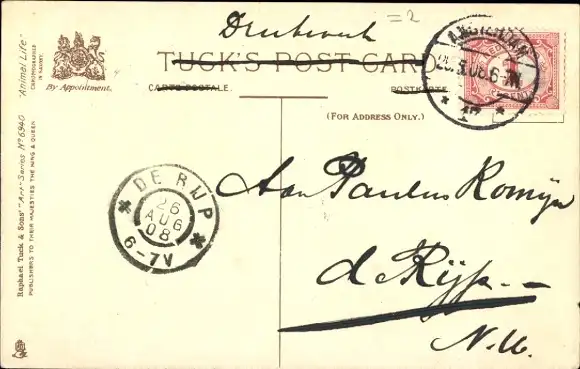 Drukwerk
= 2
TUCK'S POST CARD
CARTE POSTALE.
POSTKARTE
(FOR ADDRESS ONLY.)
By Appointment.
"Animal Life"
Raphael Tuck & Sons' "Art" Series Nº 6940
PUBLISHERS TO THEIR MAJESTIES THE KING & QUEEN
AMSTERDAM
DE RIJP
26
AUG
08
6-7V
Aan Paulus Romijn
d Rijp.
N.H.